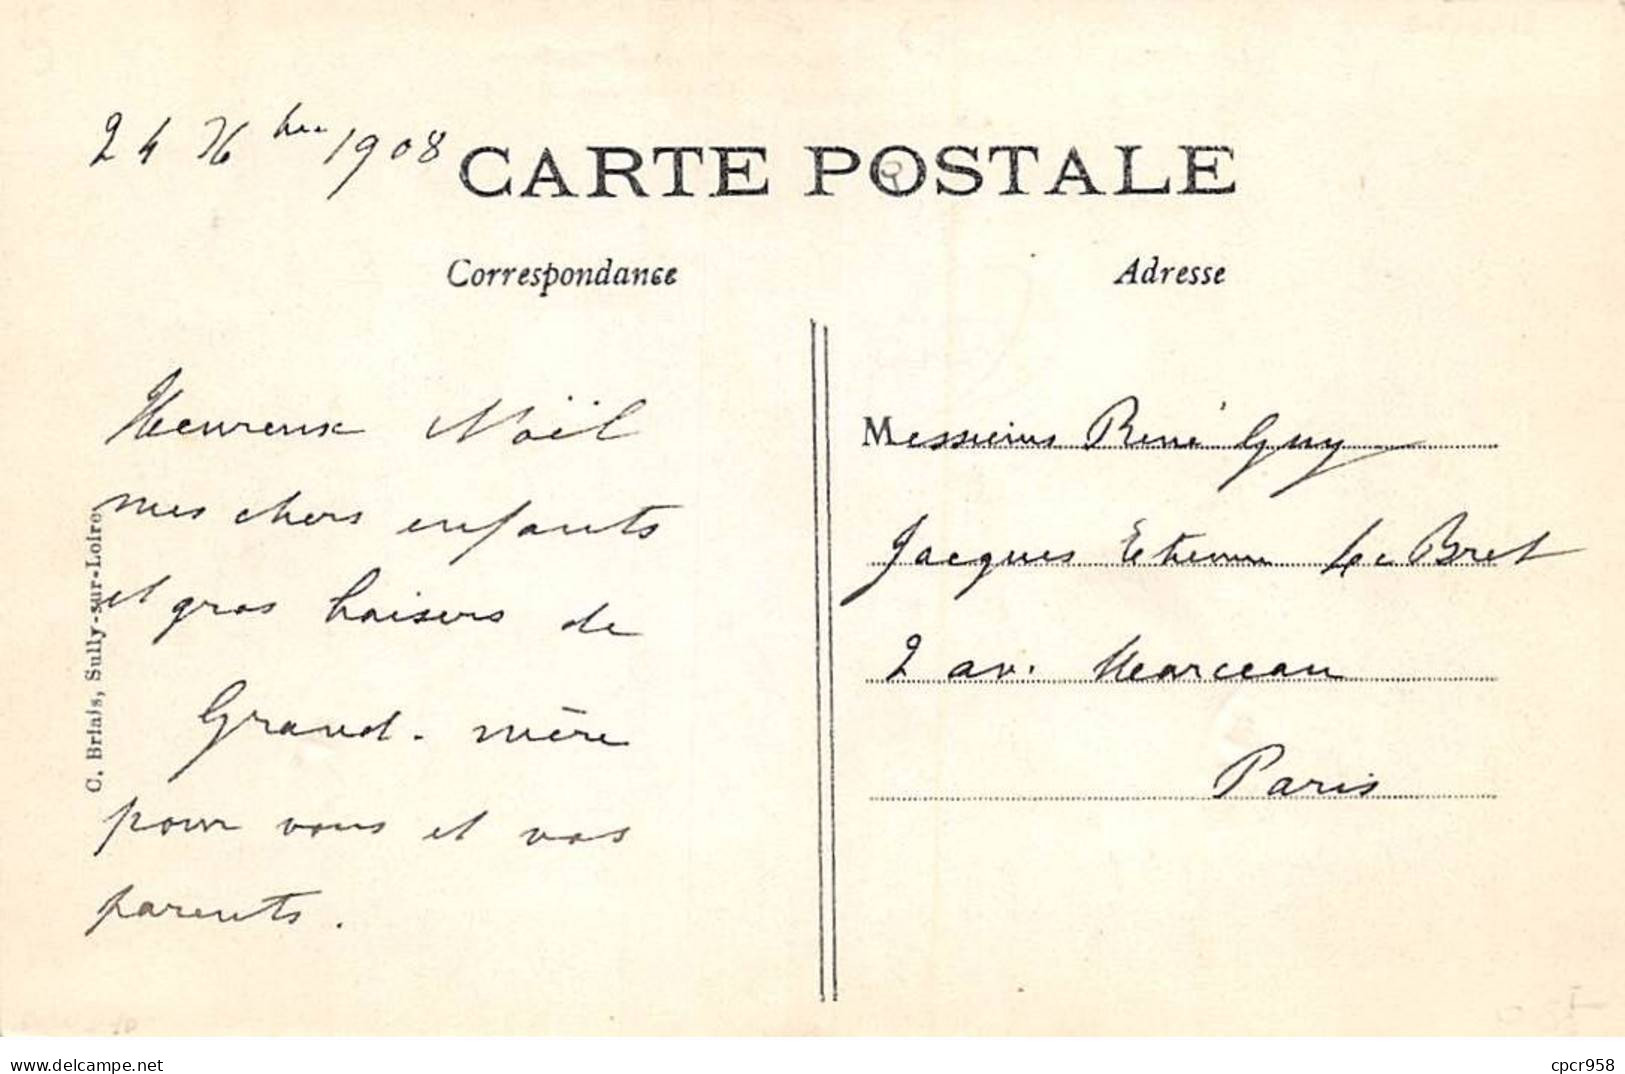 24 Xbre 1908
CARTE POSTALE
Correspondance
Adresse
Heureux Noël
mes chers enfants
et gros baisers de
Grand-mère
pour vous et vos
parents.
Messieurs René Guy
Jacques Etienne Le Bret
2 av. Marceau
Paris
C. Briais, Sully-sur-Loire
delcampe.net
cpcr958